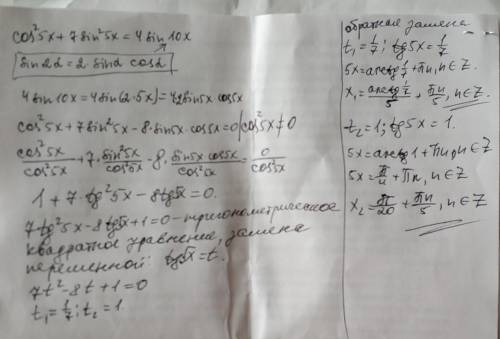 cos²5x + 7sin²5x = 4 sin 10x
sin 2α = 2·sinα cosα
4 sin 10x = 4 sin(2·5x) = 4·2 sin5x cos5x
cos²5x + 7 sin²5x - 8·sin5x·cos5x = 0 | cos²5x ≠ 0
cos²5x/cos²5x + 7·sin²5x/cos²5x - 8·sin5x cos5x/cos²5x = 0/cos²5x
1 + 7·tg²5x - 8tg5x = 0.
7tg²5x - 8tg5x + 1 = 0 - тригонометрическое
квадратное уравнение, замена
переменной: tg5x = t.
7t² - 8t + 1 = 0
t₁ = 1/7; t₂ = 1.
обратная замена
t₁ = 1/7; tg5x = 1/7
5x = arctg 1/7 + πn, n∈Z.
x₁ = arctg 1/7/5 + πn/5, n∈Z.
t₂ = 1; tg5x = 1.
5x = arctg 1 + πn, n∈Z
5x = π/4 + πn, n∈Z
x₂ = π/20 + πn/5, n∈Z